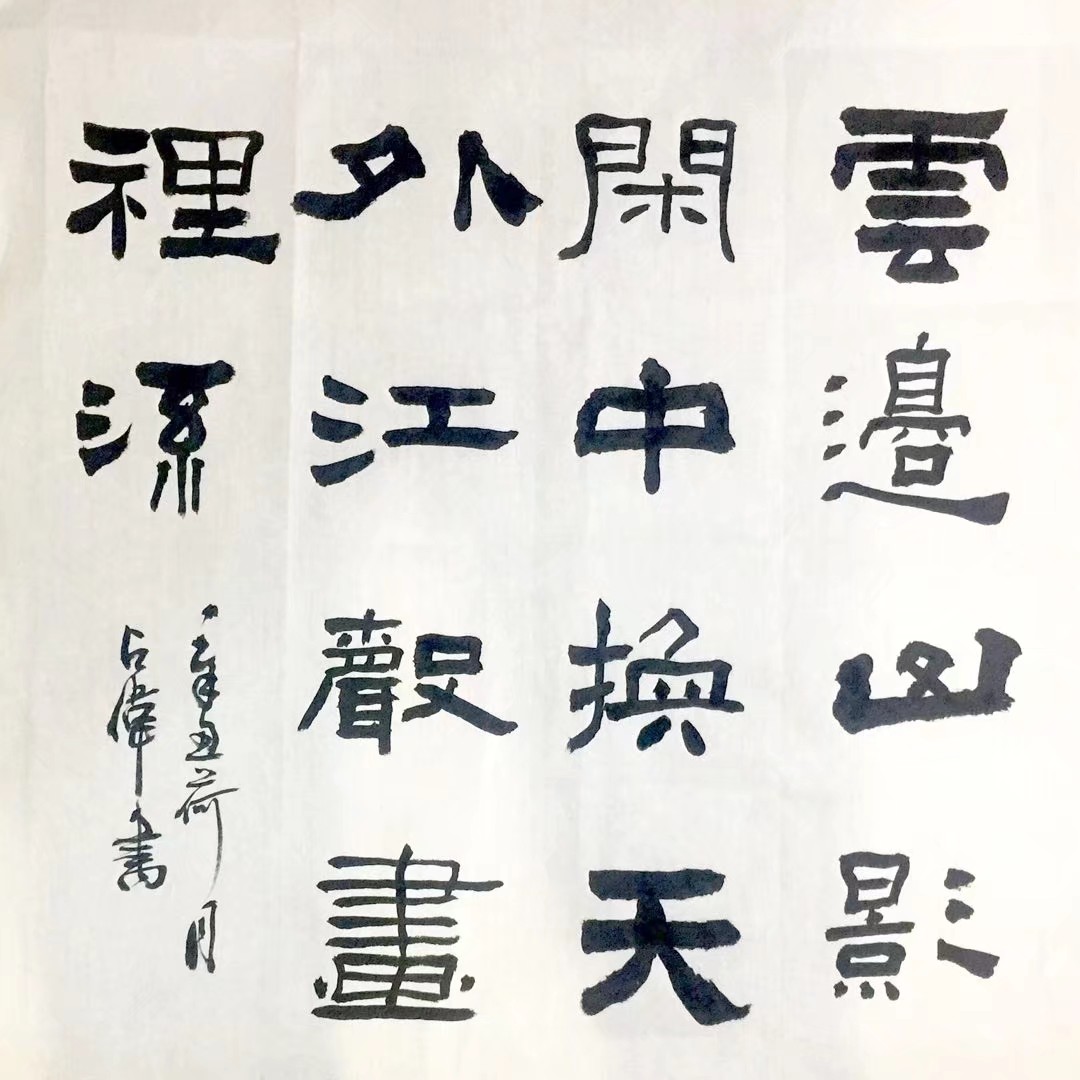 雲邊山影
閑中換天
外江聲畫
裡流
辛丑荷月
占偉書